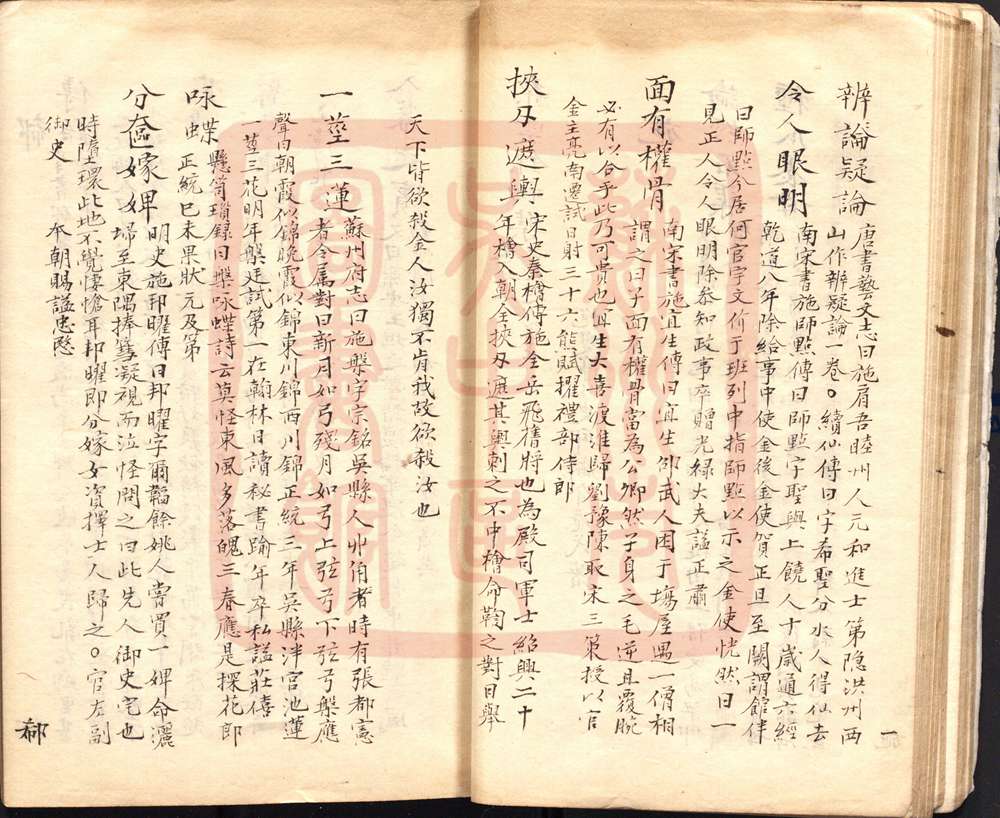 辨論疑論 唐書藝文志曰施肩吾睦州人元和進士第隐洪州西
山作辨疑論一卷○續仙傳曰字希聖分水人得仙去
令人眼明 南宋書施師點傳曰師點字聖與上饒人十歲通六經
乾道八年除給事中使金後金使賀正旦至闕謂館伴
曰師點今居何官宇文价于班列中指師點以示之金使恍然曰一
見正人令人眼明除叅知政事卒贈光緑大夫謚正肅
面有權骨 南宋書施宜生傳曰宜生邵武人困于塲屋遇一僧相
謂之曰子面有權骨當為公卿然子身之毛逆且覆腕
必有以合乎此乃可貴也宜生大喜渡淮歸劉豫陳取宋三策授以官
金主亮南遷試日射三十六熊賦擢禮部侍郎
挾刃遮輿 宋史秦檜傳施全岳飛舊將也為殿司軍士紹興二十
年檜入朝全挾刃遮其輿刺之不中檜命鞫之對曰舉
天下皆欲殺金人汝獨不肯我故欲殺汝也
一莖三蓮 蘇州府志曰施槃字宗銘吳縣人丱角者時有張都憲
者令属對曰新月如弓殘月如弓上弦弓下弦弓槃應
聲曰朝霞似錦晚霞似錦東川錦西川錦正統三年吳縣泮宫池蓮
一莖三花明年槃廷試第一在翰林日讀秘書踰年卒私謚莊僖
咏蝶 懸笥瑣録曰槃咏蝶詩云莫怪東風多落魄三春應是探花郎
正統己未果狀元及第
分奩嫁婢 明史施邦曜傳曰邦曜字爾韜餘姚人嘗買一婢命灑
埽至東隅捧篲凝視而泣怪問之曰此先人御史宅也
時墮環此地不覺悽愴耳邦曜即分嫁女資擇士人歸之○官左副
御史 本朝賜謚忠愍